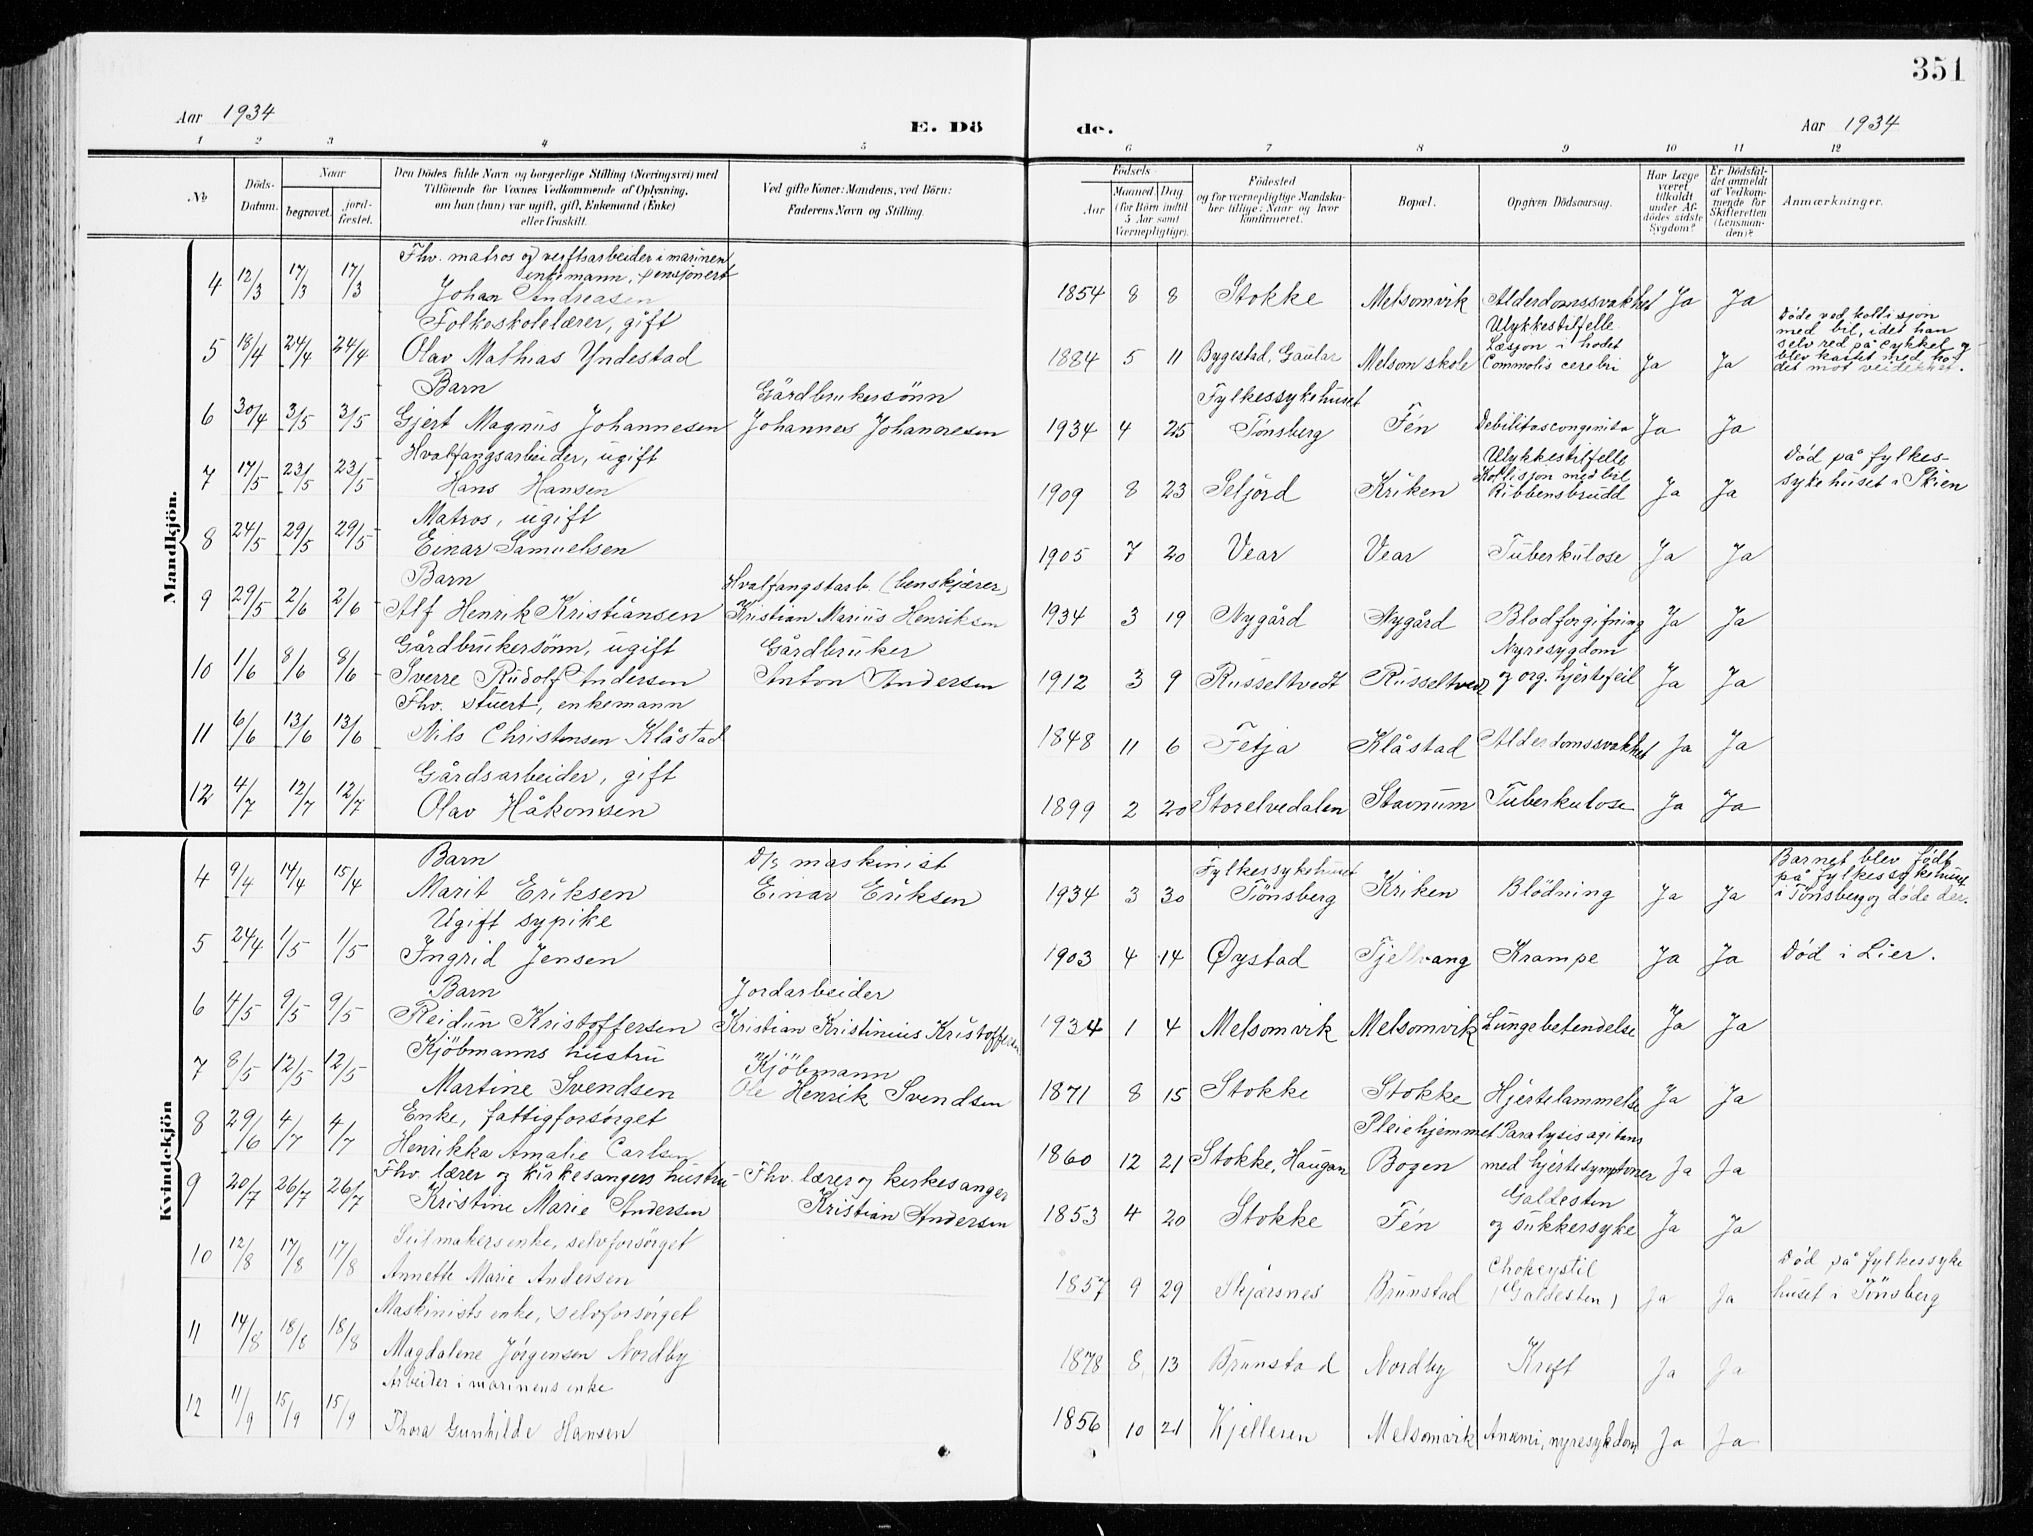 351
Aar 1934
E. Dö
de.
Aar 1934
1 2 3 4 5 6 7 8 9 10 11 12
No.
Döds-Datum.
Naar
begravet.
jord-fæstet.
Den Dödes fulde Navn og borgerlige Stilling (Næringsvei) med
Tilföiende for Voxnes Vedkommende af Oplysning,
om han (hun) var ugift, gift, Enkemand (Enke)
eller fraskilt.
Ved gifte Koner: Mandens, ved Börn:
Faderens Navn og Stilling.
Födsels-
Aar
Maaned Dag
(for Börn indtil
5 Aar samt
Værnepligtige).
Födested
og for værnepligtige Mandska-
ber tillige: Naar og hvor
konfirmeret.
Bopæl.
Opgiven Dödsaarsag.
Har Læge
været
tilkaldt
under Af-
dödes sidste
Sygdom?
Er Dödsfal-
det anmeldt
af Vedkom-
mende for
Skifteretten
(Lensman-
den)?
Anmærkninger.
Mandkjön.
Fhv. matros og verftsarbeider i marinen
enkemann, pensjonert
4 12/3 17/3 17/3 Johan Andreasen 1854 8 8 Stokke Melsomvik Alderdomssvakhet Ja Ja
Folkeskolelærer, gift Ulykkestilfelle Døde ved kollisjon
Læsjon i hodet med bil, idet han
5 18/4 24/4 24/4 Olav Mathias Yndestad 1884 5 11 Bygestad, Gaular Melsom skole Commotis cerebri Ja Ja selv red på cykkel og
blev kastet med ho-
det mot veidekket.
Barn Gårdbrukersønn Fylkessykehuset
6 30/4 3/5 3/5 Gjert Magnus Johannesen Johannes Johannesen 1934 4 25 Tønsberg Fén Debilitas congenita Ja Ja
Hvalfangsarbeider, ugift Ulykkestilfelle Død på fylkes-
Kollisjon med bil
7 17/5 23/5 23/5 Hans Hansen 1909 8 23 Seljord Kriken Ribbensbrudd Ja Ja sykehuset i Skien
Matros, ugift
8 24/5 29/5 29/5 Einar Samuelsen 1905 7 20 Vear Vear Tuberkulose Ja Ja
Barn Hvalfangstarb. (benskjærer)
9 29/5 2/6 2/6 Alf Henrik Kristiansen Kristian Marius Henriksen 1934 3 19 Nygård Nygård Blodforgifning Ja Ja
Gårdbrukersønn, ugift Gårdbruker Nyresygdom
10 1/6 8/6 8/6 Sverre Rudolf Andersen Anton Andersen 1912 3 9 Russeltvedt Russeltvedt og org. hjertefeil Ja Ja
Fhv. stuert, enkemann
11 6/6 13/6 13/6 Nils Christensen Klåstad 1848 11 6 Fetja Klåstad Alderdomssvakhet Ja Ja
Gårdsarbeider, gift
12 4/7 12/7 12/7 Olav Håkonsen 1899 2 20 Storelvedalen Stavnum Tuberkulose Ja Ja
Kvindekjön
Barn D/s maskinist Fylkessykehuset Barnet blev født
på fylkessykehuset
4 9/4 14/4 15/4 Marit Eriksen Einar Eriksen 1934 3 30 Tønsberg Kriken Blødning Ja Ja i Tønsberg og døde der.
Ugift sypike
5 24/4 1/5 1/5 Ingrid Jensen 1903 4 14 Øystad Fjellvang Krampe Ja Ja Død i Lier.
Barn Jordarbeider
6 4/5 9/5 9/5 Reidun Kristoffersen Kristian Kristinius Kristoffersen 1934 1 4 Melsomvik Melsomvik Lungebetendelse Ja Ja
Kjøbmanns hustru Kjøbmann
7 8/5 12/5 12/5 Martine Svendsen Ole Henrik Svendsen 1871 8 15 Stokke Stokke Hjertelammelse Ja Ja
Enke, fattigforsørget Pleiehjemmet Paralysis agitans
8 29/6 4/7 4/7 Henrikka Amalie Carlsen 1860 12 21 Stokke, Haugan Bogen med hjertesymptoner Ja Ja
Fhv. lærer og kirkesangers hustru Fhv. lærer og kirkesanger Galdesten
9 20/7 26/7 26/7 Kristine Marie Andersen Kristian Andersen 1853 4 20 Stokke Fén og sukkersyke Ja Ja
Seilmakers enke, selvforsørget Chokcystil Død på fylkessyke
10 12/8 17/8 17/8 Annette Marie Andersen 1857 9 29 Skjærsnes Brunstad (Galdesten) Ja Ja huset i Tønsberg
Maskinists enke, selvforsørget
11 14/8 18/8 18/8 Magdalene Jørgensen Nordby 1878 8 13 Brunstad Nordby Kreft Ja Ja
Arbeider i marinens enke
12 11/9 15/9 15/9 Thora Gunhilde Hansen 1856 10 21 Kjelleren Melsomvik Anæmi, nyresykdom Ja Ja